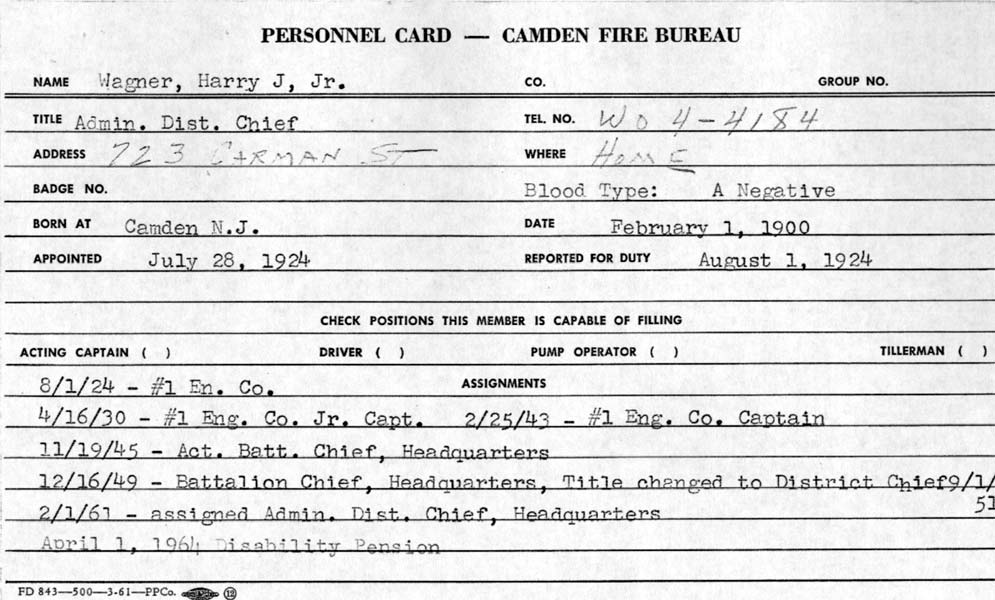 PERSONNEL CARD — CAMDEN FIRE BUREAU
NAME Wagner, Harry J, Jr. CO. GROUP NO.
TITLE Admin. Dist. Chief TEL. NO. WO 4-4184
ADDRESS 723 CARMAN ST WHERE HOME
BADGE NO. Blood Type: A Negative
BORN AT Camden N.J. DATE February 1, 1900
APPOINTED July 28, 1924 REPORTED FOR DUTY August 1, 1924
CHECK POSITIONS THIS MEMBER IS CAPABLE OF FILLING
ACTING CAPTAIN ( ) DRIVER ( ) PUMP OPERATOR ( ) TILLERMAN ( )
8/1/24 - #1 En. Co. ASSIGNMENTS
4/16/30 - #1 Eng. Co. Jr. Capt. 2/25/43 - #1 Eng. Co. Captain
11/19/45 - Act. Batt. Chief, Headquarters
12/16/49 - Battalion Chief, Headquarters, Title changed to District Chief9/1/
51
2/1/61 - assigned Admin. Dist. Chief, Headquarters
April 1, 1964 Disability Pension
FD 843—500—3-61—PPCo. 12